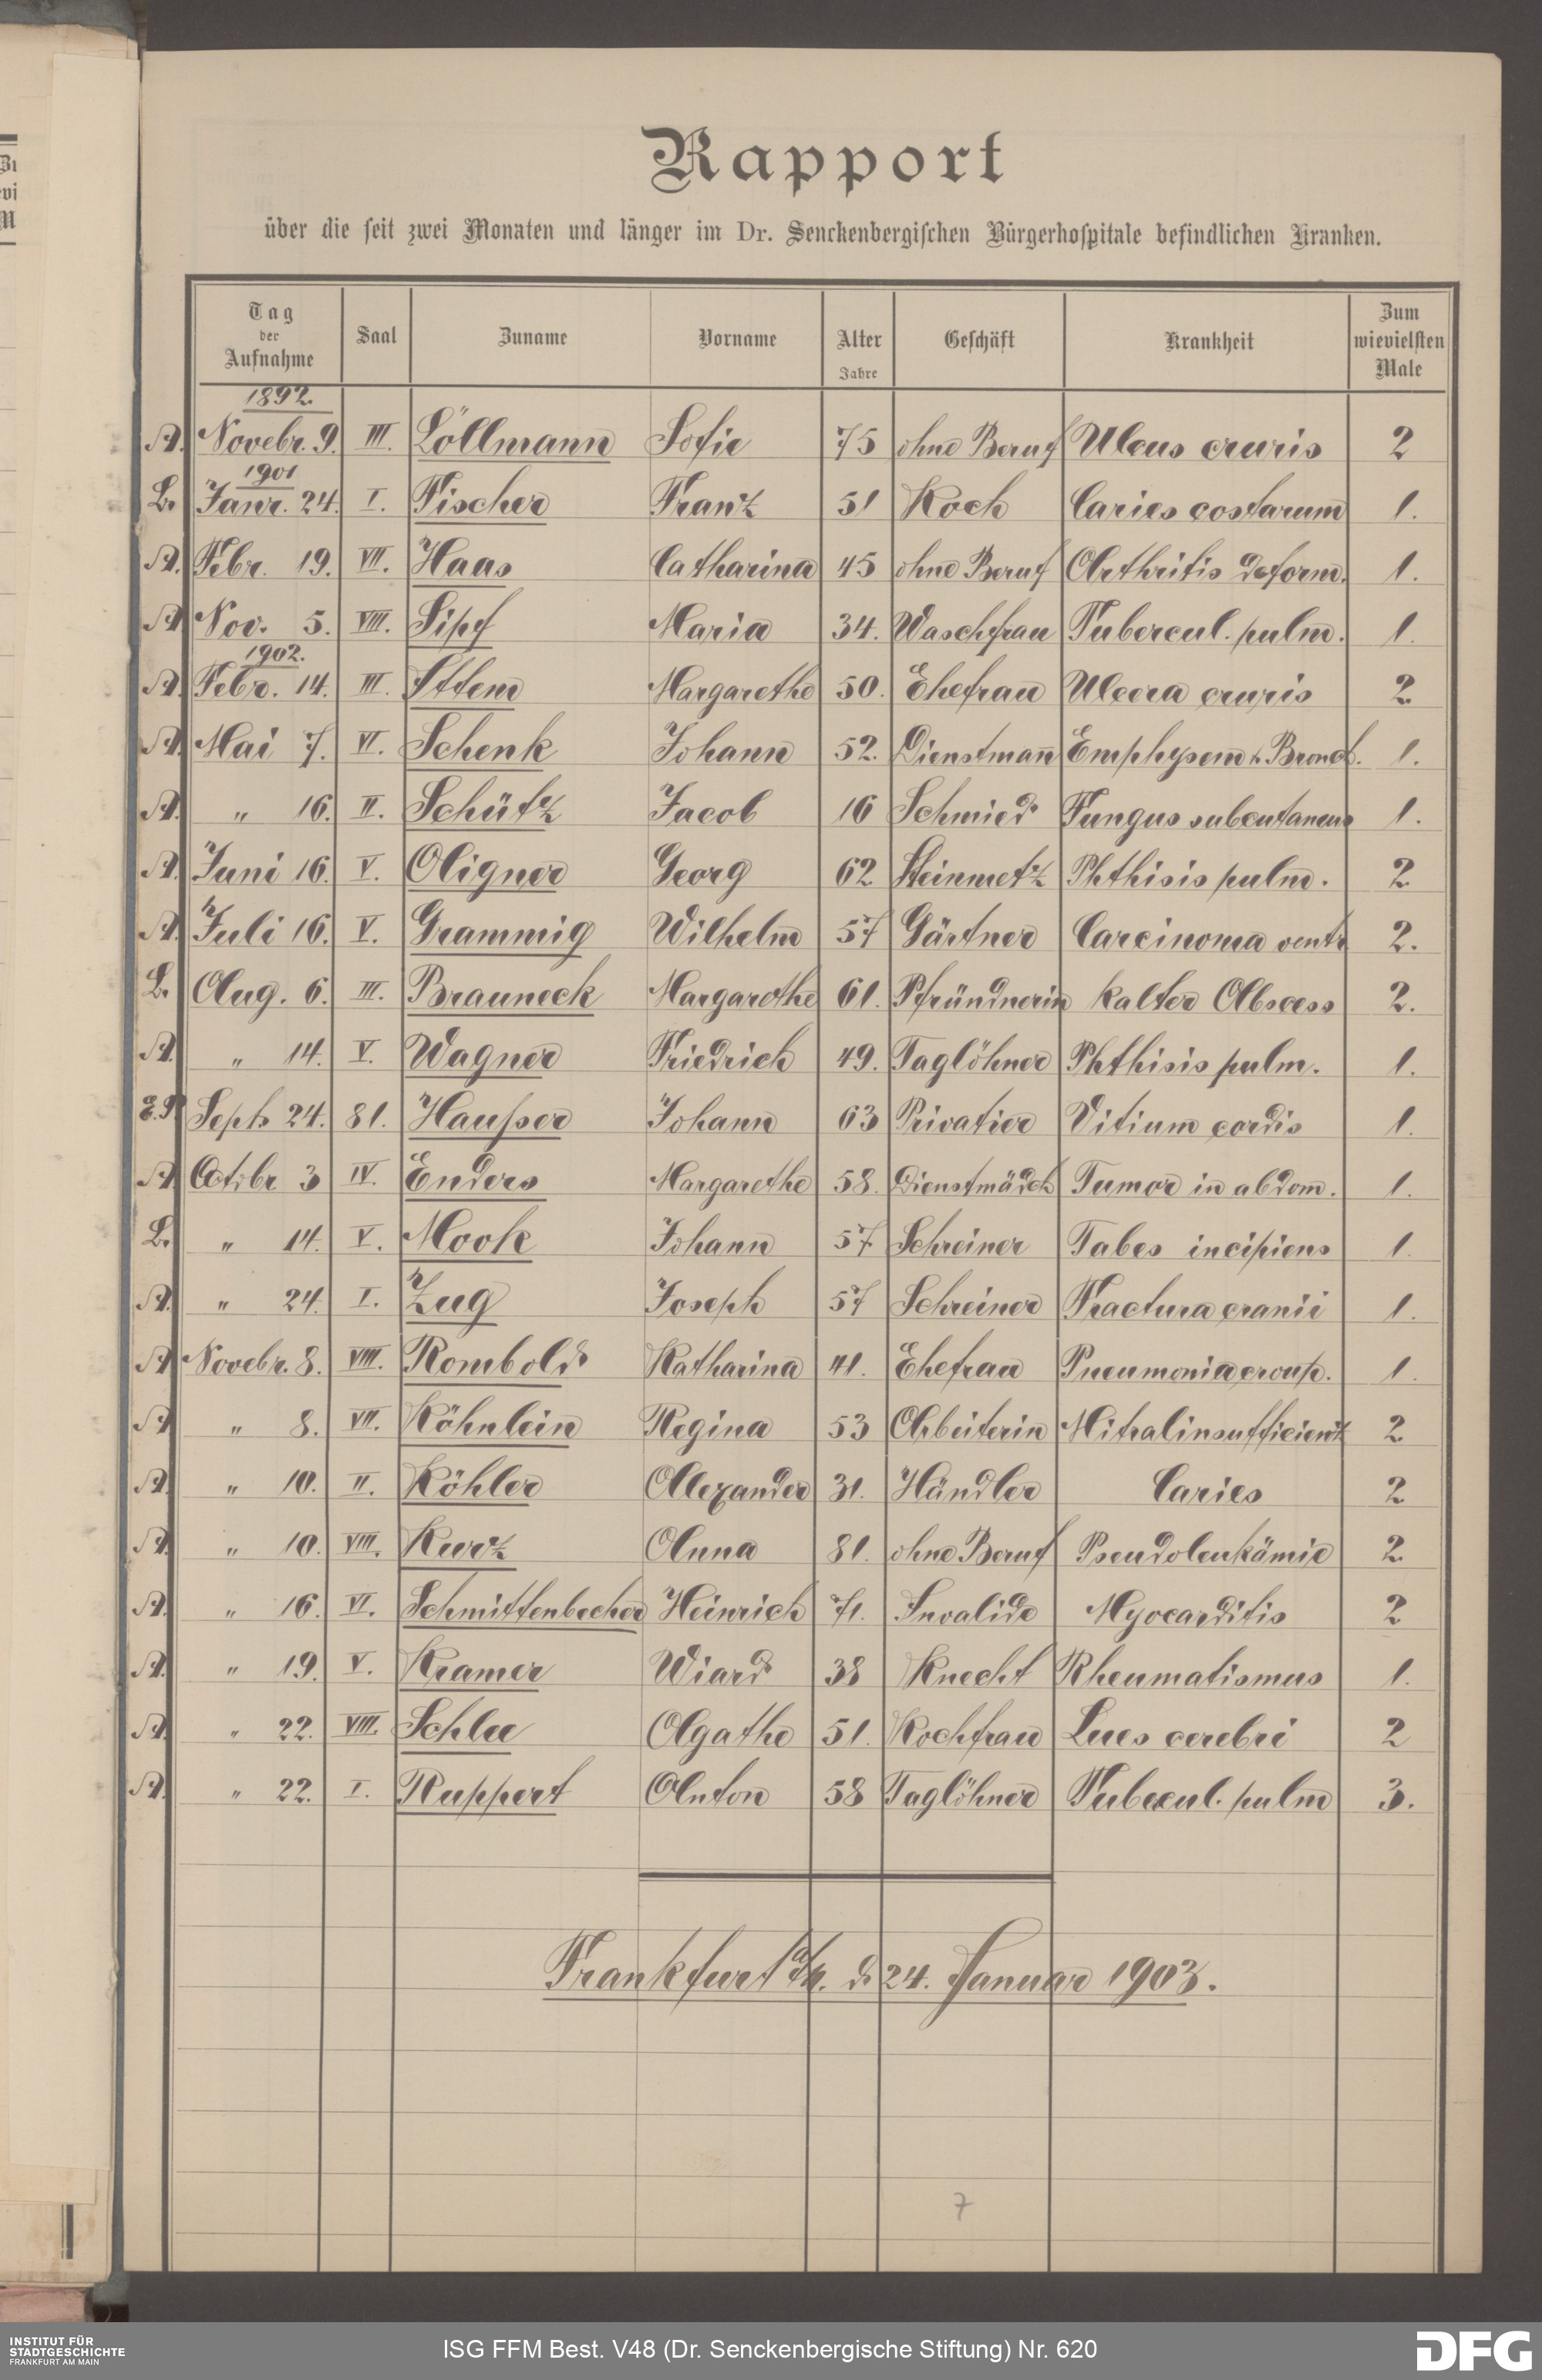 Rapport
über die seit zwei Monaten und länger im Dr. Senckenbergischen Bürgerhospitale befindlichen Kranken.
Tag der Aufnahme Saal Zuname Vorname Alter Jahre Geschäft Krankheit Zum wievielsten Male
1892.
A. Novebr. 9. III. Löllmann Sofie 75 ohne Beruf Ulcus cruris 2
1901
L. Janr. 24. I. Fischer Franz 51 Koch Caries costarum 1.
A. Febr. 19. VII. Haas Catharina 45 ohne Beruf Arthritis deform. 1.
A. Nov. 5. VIII. Sipf Maria 34. Waschfrau Tubercul. pulm. 1.
1902.
A. Febr. 14. III. Ittem Margarethe 50. Ehefrau Ulcera cruris 2
A. Mai 7. VI. Schenk Johann 52. Dienstmann̄ Emphysem Bronch. 1.
A. " 16. II. Schütz Jacob 16 Schmied Fungus subcutaneus 1.
A. Juni 16. V. Aligner Georg 62 Steinmetz Phthisis pulm. 2
A. Juli 16. V. Grammig Wilhelm 57 Gärtner Carcinoma ventr 2.
L. Aug. 6. III. Brauneck Margarethe 61. Pfründnerin kalter Abscess 2.
A. " 14. V. Wagner Friedrich 49. Taglöhner Phthisis pulm. 1.
Septb 24. 81. Hausser Johann 63 Privatier Vitium cordis 1.
A. Octbr 3 IV. Enders Margarethe 58. Dienstmädch Tumor in abdom. 1.
L. " 14. V. Mook Johann 57 Schreiner Tabes incipiens 1.
A. " 24. I. Zug Joseph 57 Schreiner Fractura cranii 1.
A. Novebr. 8. VIII. Rombold Katharina 41. Ehefrau Pneumonia croup. 1.
A. " 8. VII. Köhnlein Regina 53 Arbeiterin Mitralinsufficienz 2
A. " 10. II. Köhler Alexander 31. Händler Caries 2
A. " 10. VIII. Kurz Anna 81. ohne Beruf Pseudoleukämie 2
A. " 16. VI. Schmittenbecher Heinrich 71. Invalide Myocarditis 2
A. " 19. V. Kramer Wiard 38 Knecht Rheumatismus 1.
A. " 22. VIII. Schlee Agathe 51. Kochfrau Lues cerebri 2
A. " 22. I. Ruppert Anton 58 Taglöhner Tubercul. pulm 3.
Frankfurt a/M. d. 24. Januar 1903.
7
INSTITUT FÜR
STADTGESCHICHTE
FRANKFURT AM MAIN
ISG FFM Best. V48 (Dr. Senckenbergische Stiftung) Nr. 620
DFG